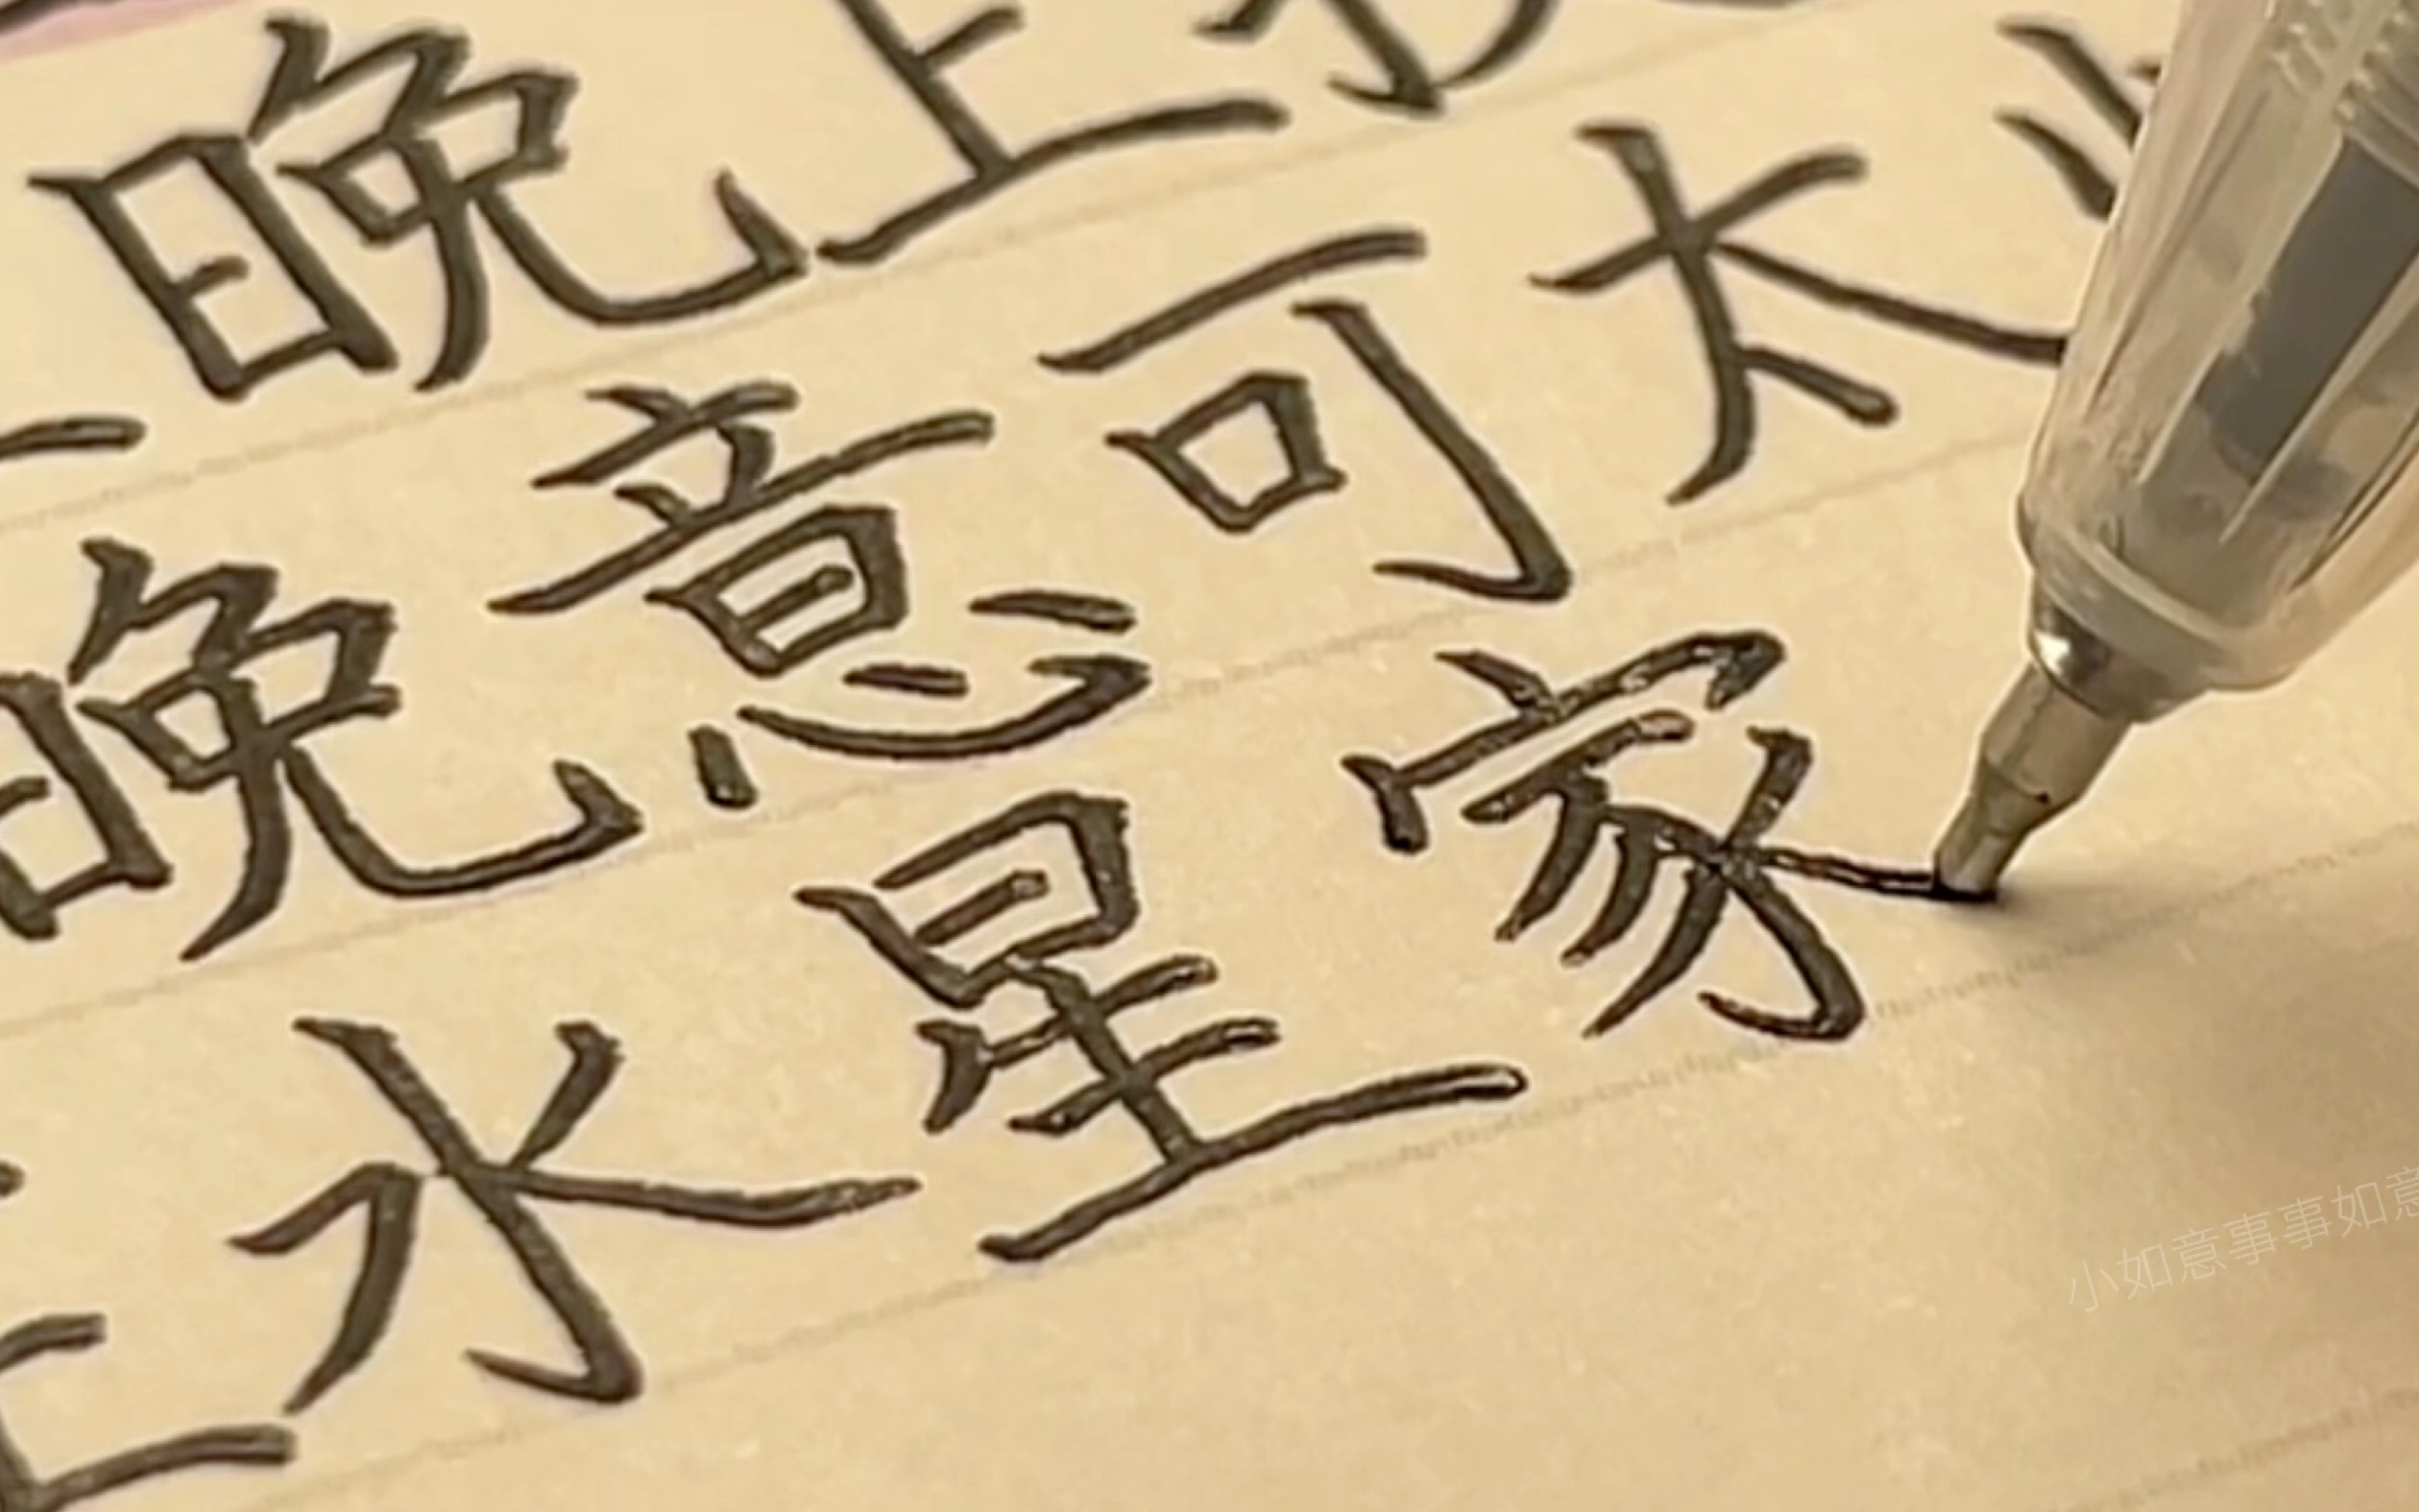 晚上
晚意可太
水星家
小如意事事如意